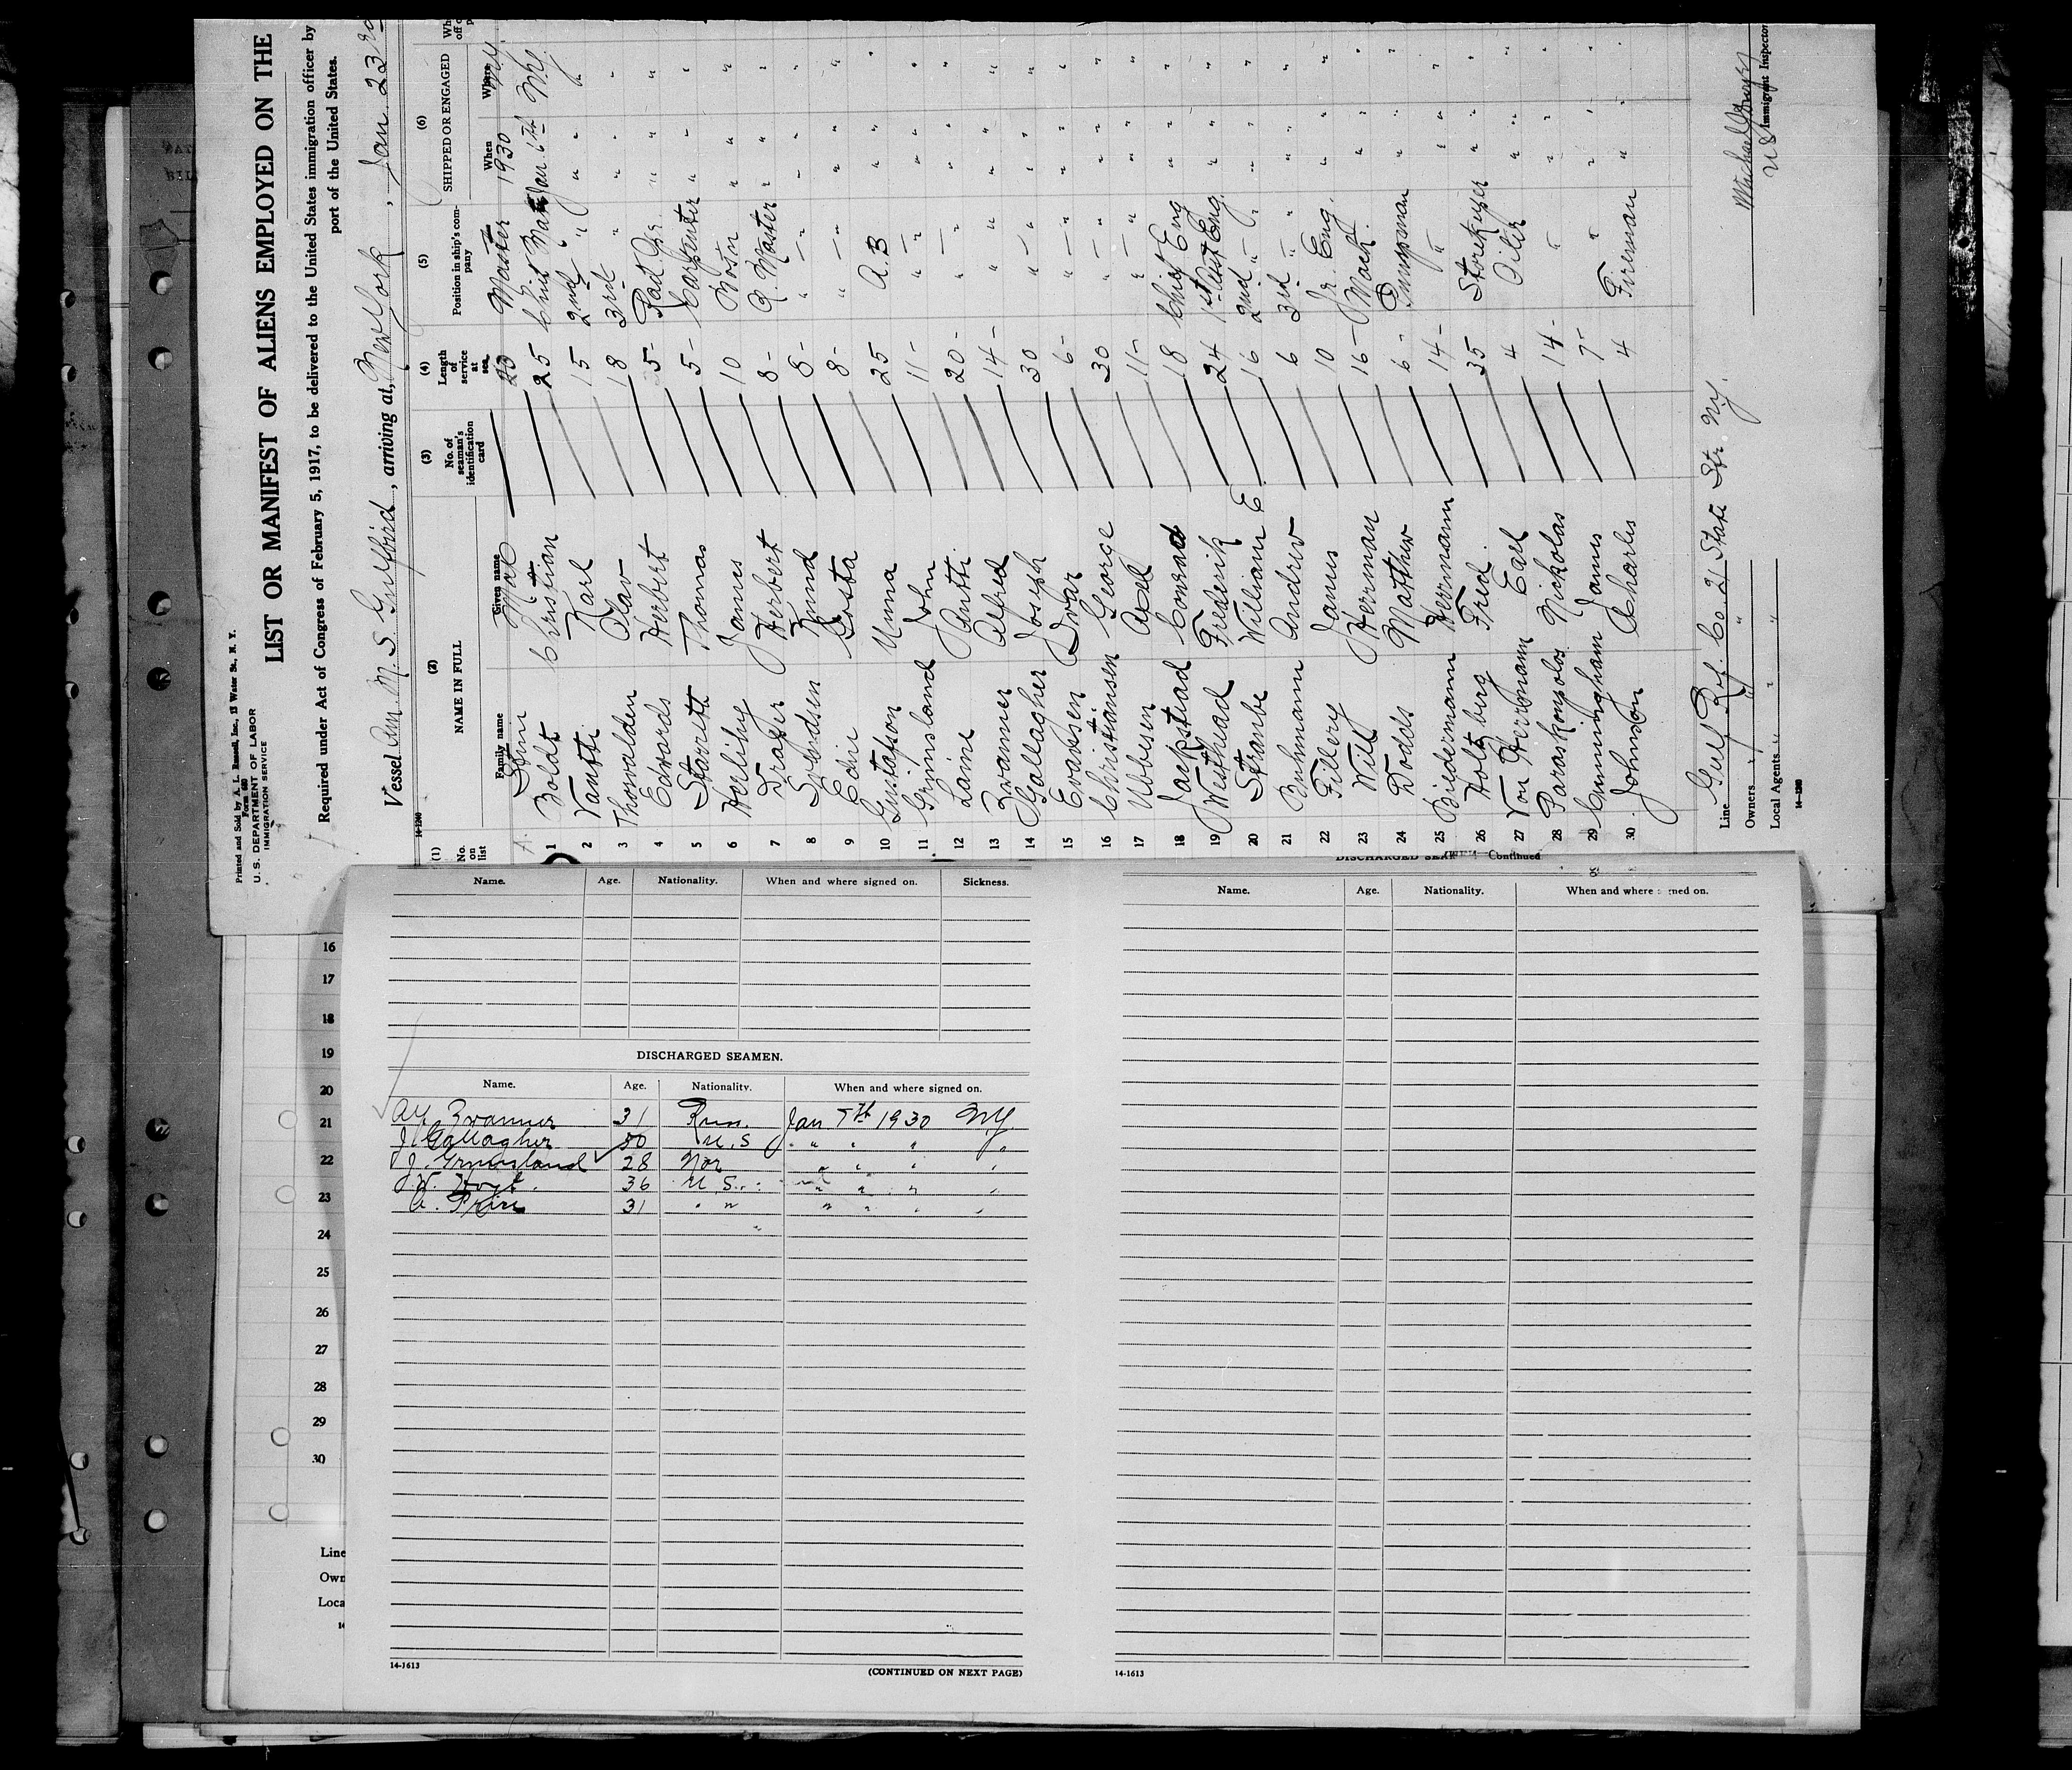 Printed and Sold by A. L. Russell, Inc., 12 Water St., N. Y.
Form 680
U. S. DEPARTMENT OF LABOR
IMMIGRATION SERVICE
LIST OR MANIFEST OF ALIENS EMPLOYED ON THE
Required under Act of Congress of February 5, 1917, to be delivered to the United States immigration officer by
port of the United States.
Vessel Am. M. S. Gulfbird, arriving at, New York, Jan. 23rd
14-1240
(1) (2) (3) (4) (5) (6)
No. on list NAME IN FULL No. of seaman's identification card Length of service at sea Position in ship's company SHIPPED OR ENGAGED
Family name Given name When Where
20 Master 1930 NY
1 Boldt Christian 25 Chief Mate Jan. 6th N.Y.
2 Vantti Karl 15 2nd " " " "
3 Thorvalden Olav 18 3rd " " " "
4 Edwards Herbert 5- Rad Opr. " " "
5 Starrett Thomas 5- Carpenter " " "
6 Herlihy James 10 Bosn " " "
7 Drager Herbert 8- Q. Master " " "
8 Svendsen 8- " " " "
9 Edin Gosta 8- " " " "
10 Gustafson Unna 25 A.B " " "
11 Grimsland John 11- " " " "
12 Laine Antti 20- " " " "
13 Zvanner Alfred 14- " " " "
14 Gallagher Joseph 30 " " " "
15 Evansen Ivar 6- " " " "
16 Christiansen George 30 " " " "
17 Ubbesen Axel 11- " " " "
18 Jackstead Conrad 18 Chief Eng " " "
19 Westhead Frederik 24 1st Asst Eng. " " "
20 Straube William E 16 2nd " " " " "
21 Buhmann Andrew 6 3rd " " " " "
22 Fillery James 10 Jr. Eng. " " "
23 Will Herrman 16- Mach. " " "
24 Dodds Matthew 6- Pumpman " " "
25 Biedermann Herrmann 14- " " " "
26 Holtzburg Fred. 35 Storekeeper " " "
27 Von Herrmann Carl 4 Oiler " " "
28 Paraskopolos Nickolas 14- " " " "
29 Cunningham James 7- " " " "
30 Johnson Charles 4 Fireman " " "
Line Gulf Ref. Co. 21 State Str N.Y.
Owners " " "
Local Agents " " "
14-1240
Immigrant Inspector
DISCHARGED SEAMEN Continued
Name. Age. Nationality. When and where signed on. Sickness.
Name. Age. Nationality. When and where signed on.
16
17
18
19
20
21
22
23
24
25
26
27
28
29
30
Line
Own
Loca
DISCHARGED SEAMEN.
Name. Age. Nationality. When and where signed on.
Alf Zvanner 31 Russ. Jan 7th 1930 N.Y.
J. Gallagher 50 U.S " " " "
J. Grimsland 28 Nor " " " "
J.W. Hoyt. 36 U.S. " " " "
A. Price 31 " " " " " "
14-1613
(CONTINUED ON NEXT PAGE)
14-1613